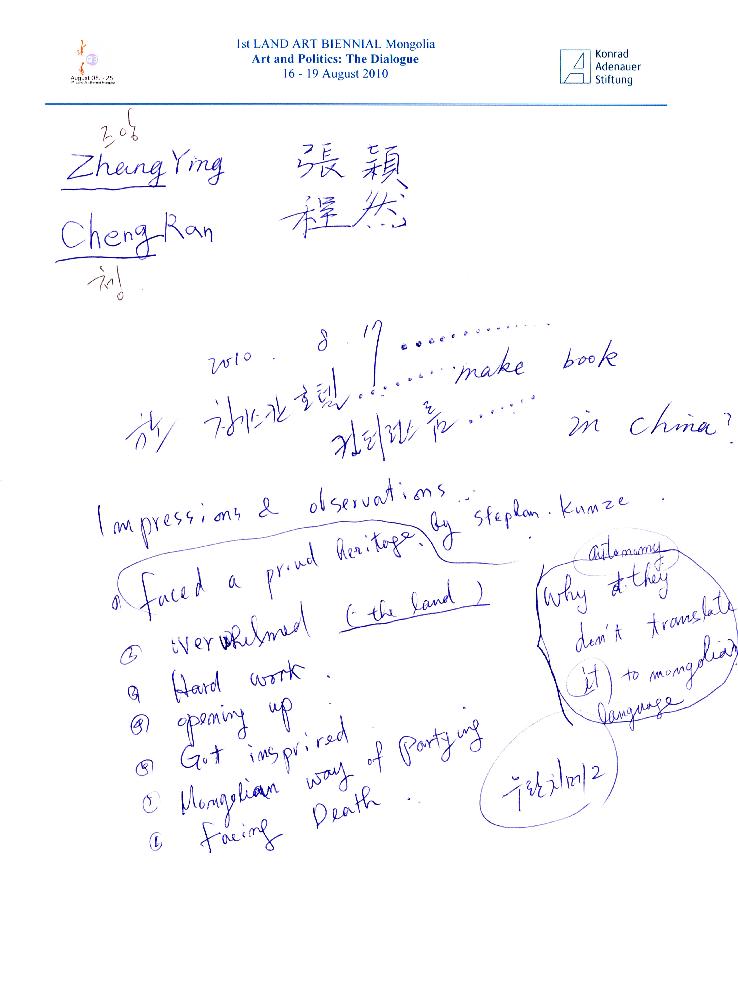 1st LAND ART BIENNIAL Mongolia
Art and Politics: The Dialogue
16 - 19 August 2010
August 05. - 25
Konrad
Adenauer
Stiftung
Zhang Ying 張穎
Cheng Ran 程然
청
2010. 8. 17
칭기스칸 호텔 make book
컨퍼런스 룸 in china?
Impressions & observations
faced a proud heritage. by Stephan. Kunze
② overwhelmed (the land)
Hard work.
④ opening up.
⑤ Got inspired
Mongolian way of Partying
Facing Death.
autonomy
Why they
don't translate
it to mongolian
language